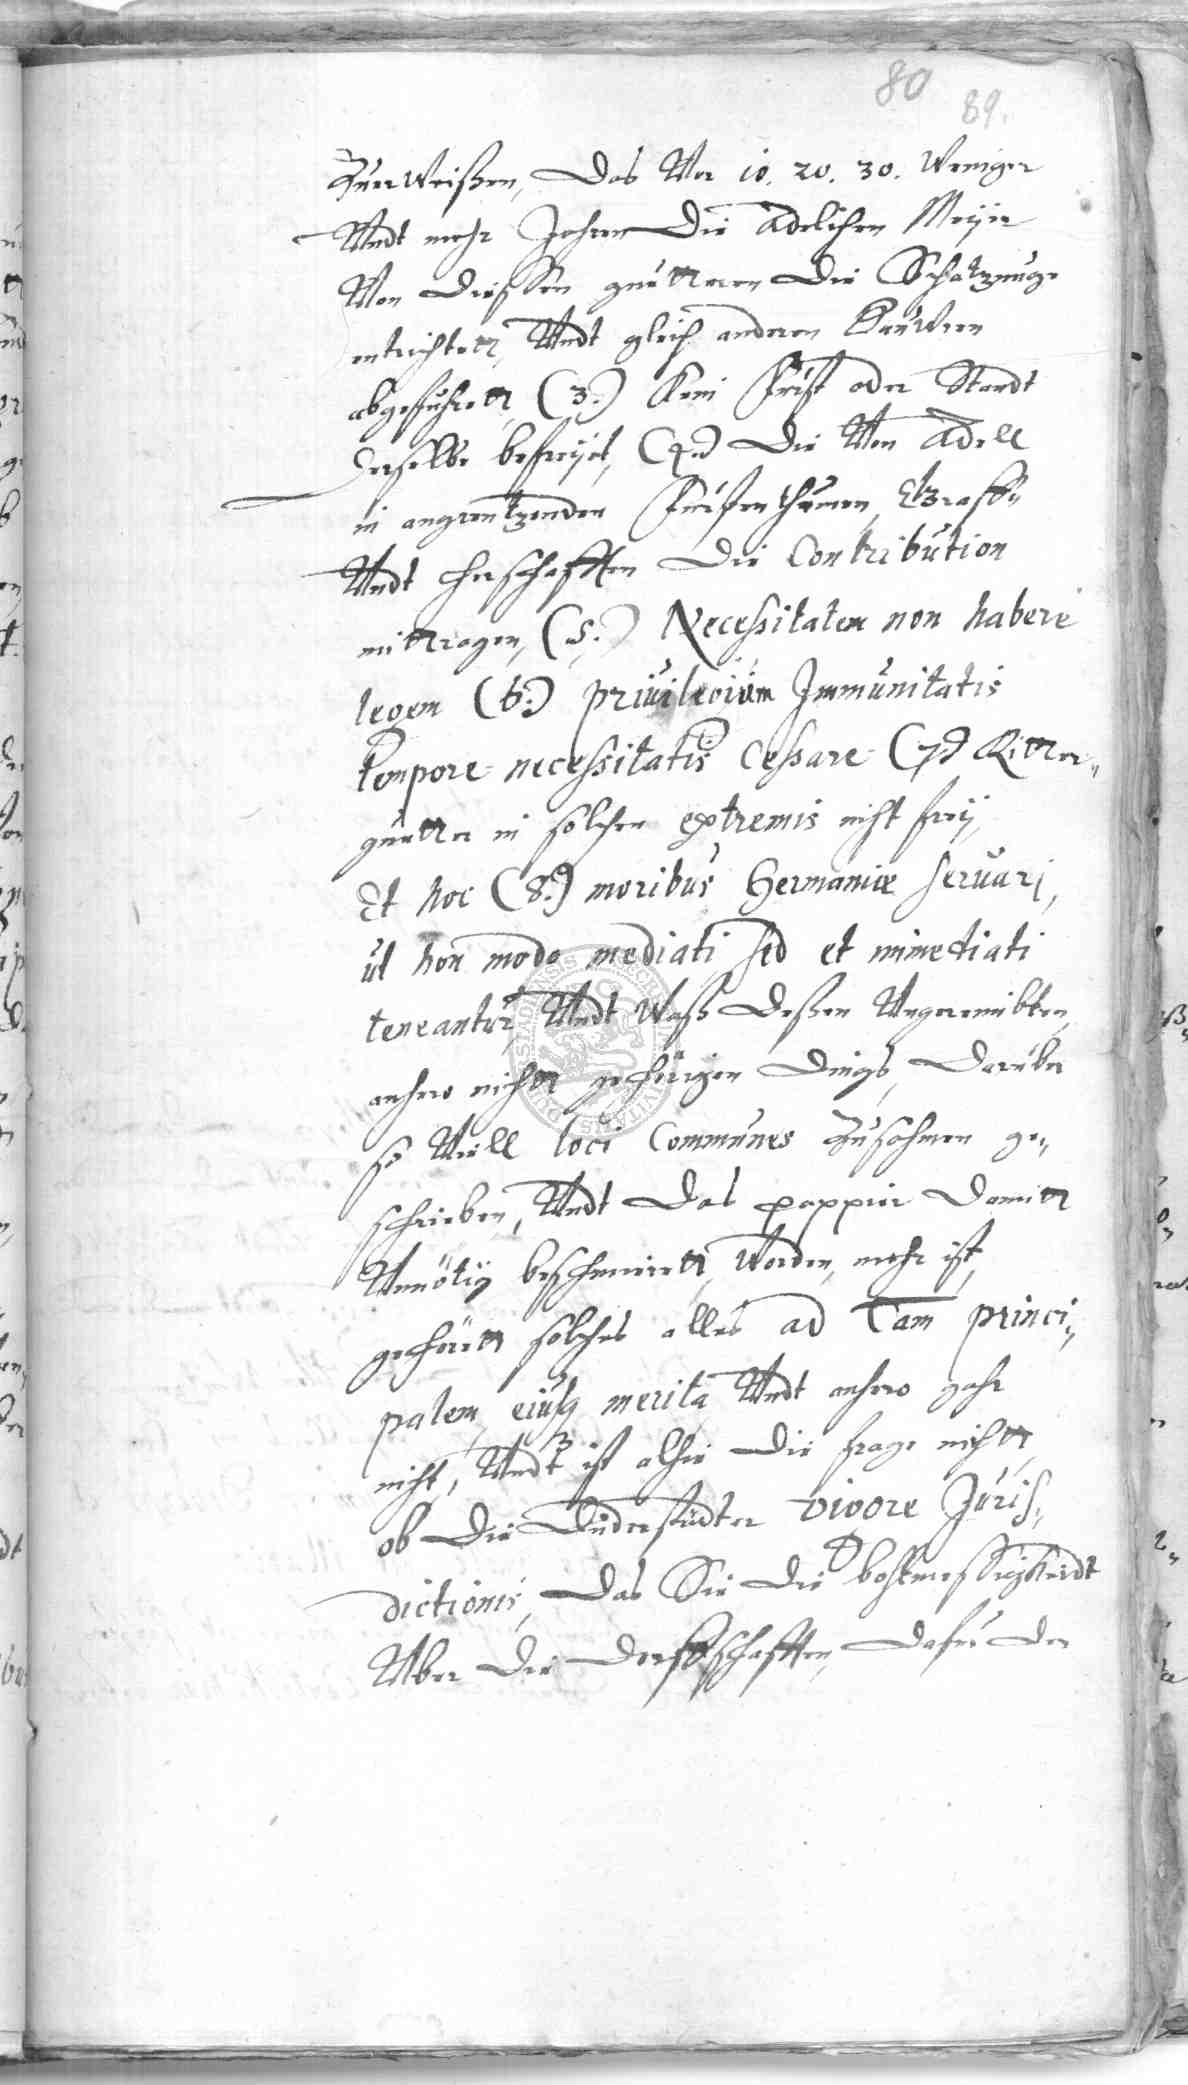 80
89.
Zuerweißen, das Vor 10. 20. 30. Weniger
Vndt mehr Jahren die Adelichen Meÿer
Von diessen guettern die Schatzunge
entrichtett, Vndt gleich anderen Bauwren
abgefuhrett, (3.) Kein Stifft oder Standt
derselbe befreÿet, (4.) die Von Adell
in angrentzenden Fürstenthumen, Graff-
Vndt Herschafften die Contribution
mittragen, (5.) Necessitatem non habere
legem (6.) privilegium Immunitatis
tempore necessitatis Cessare (7.) Ritter-
guetter in solchen extremis nicht freÿ,
Et hoc (8.) moribus Germaniæ servari,
ut non modo mediati sed et immediati
teneantur, Vndt Waß deßen Vngereimbten,
anhero nichtt gehörigen dings, darüber
so Viell loci Communes Zusahmen ge-
schrieben, Vndt das pappier damitt
Vnnötig beschmierett, Worden, mehr ist,
gehörett solches alles ad Cam princi-
palem, eiusq merita Vndt anhero gahr
nicht, Vndt ist alhie die frage nichtt,
ob die Duderstädter vigore Juris-
dictionis, das Sie die bottmessigkeidt
Vber die Dorffschafften, dafür der